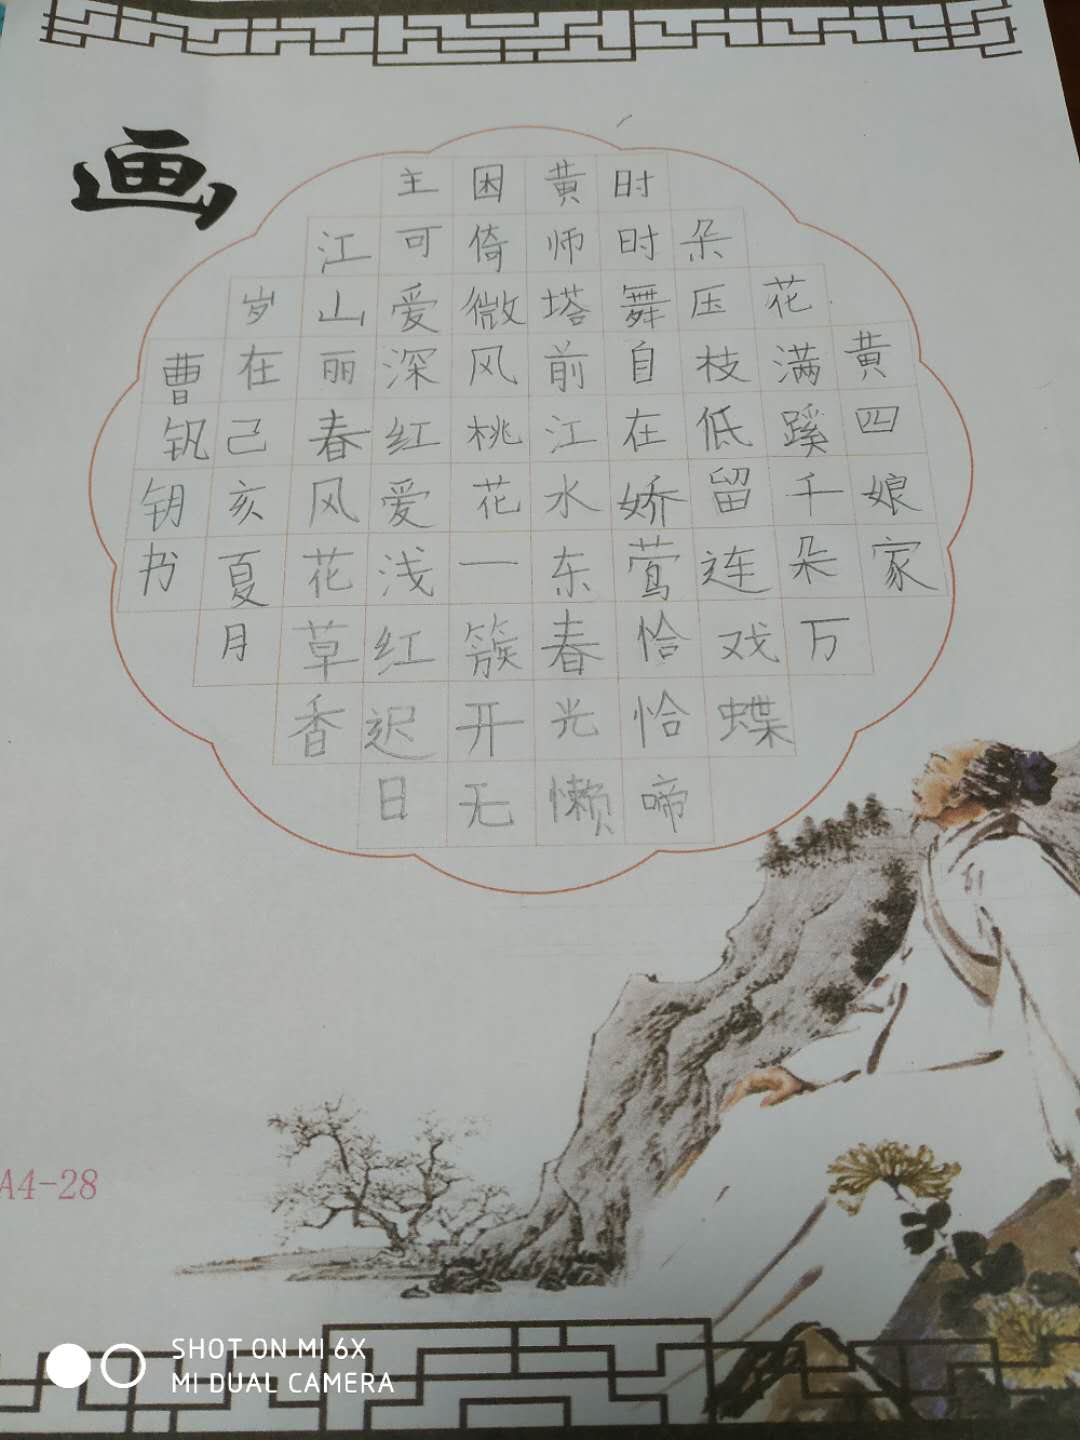 黄四娘家
花满蹊千朵万
朵压枝低留连戏蝶
时时舞自在娇莺恰恰啼
黄师塔前江水东春光懒
困倚微风桃花一簇开无
主可爱深红爱浅红迟日
江山丽春风花草香
岁在己亥夏月
曹钒钥书
画
A4-28
SHOT ON MI 6X
MI DUAL CAMERA